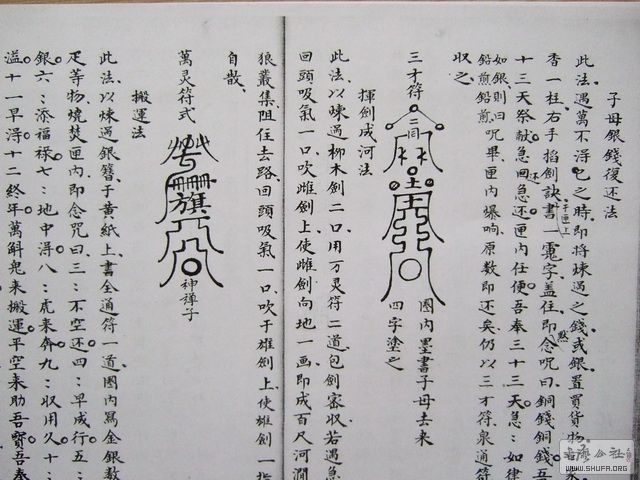 子母銀錢復还法
此法遇万不得已之时即将煉過之錢或銀置買貨物
香一柱右手掐劍訣書一霓字盖住即念咒曰銅錢銅錢吾
于匣上
十三天祭献急回急还匣内任便吾奉三十三天急:如律
如銀則曰
鉛煎鉛煎
咒畢匣内爆响原数即还矣仍以三才符泉通符
収之
三才符
圈内墨書子母去来
四字塗之
揮劍成河法
此法以煉過柳木劍二口用万灵符二道包劍密収若遇急
回頭吸氣一口吹雌劍上使雌劍向地一画即成百尺河澗
狼叢集阻住去路回頭吸氣一口吹于雄劍上使雄劍一指
自散
萬灵符式
神禅子
搬運法
此法以煉過銀簪子黄紙上書全通符一道圈内寫金銀数
疋等物燒焚匣内即念咒曰三:不空还四:早成行五:
銀六:添福禄七:地中得八:虎来奔九:収用久十:
溢十一早得十二終年萬斛鬼来搬運平空来助吾寳吾奉
WWW.SHUFA.ORG